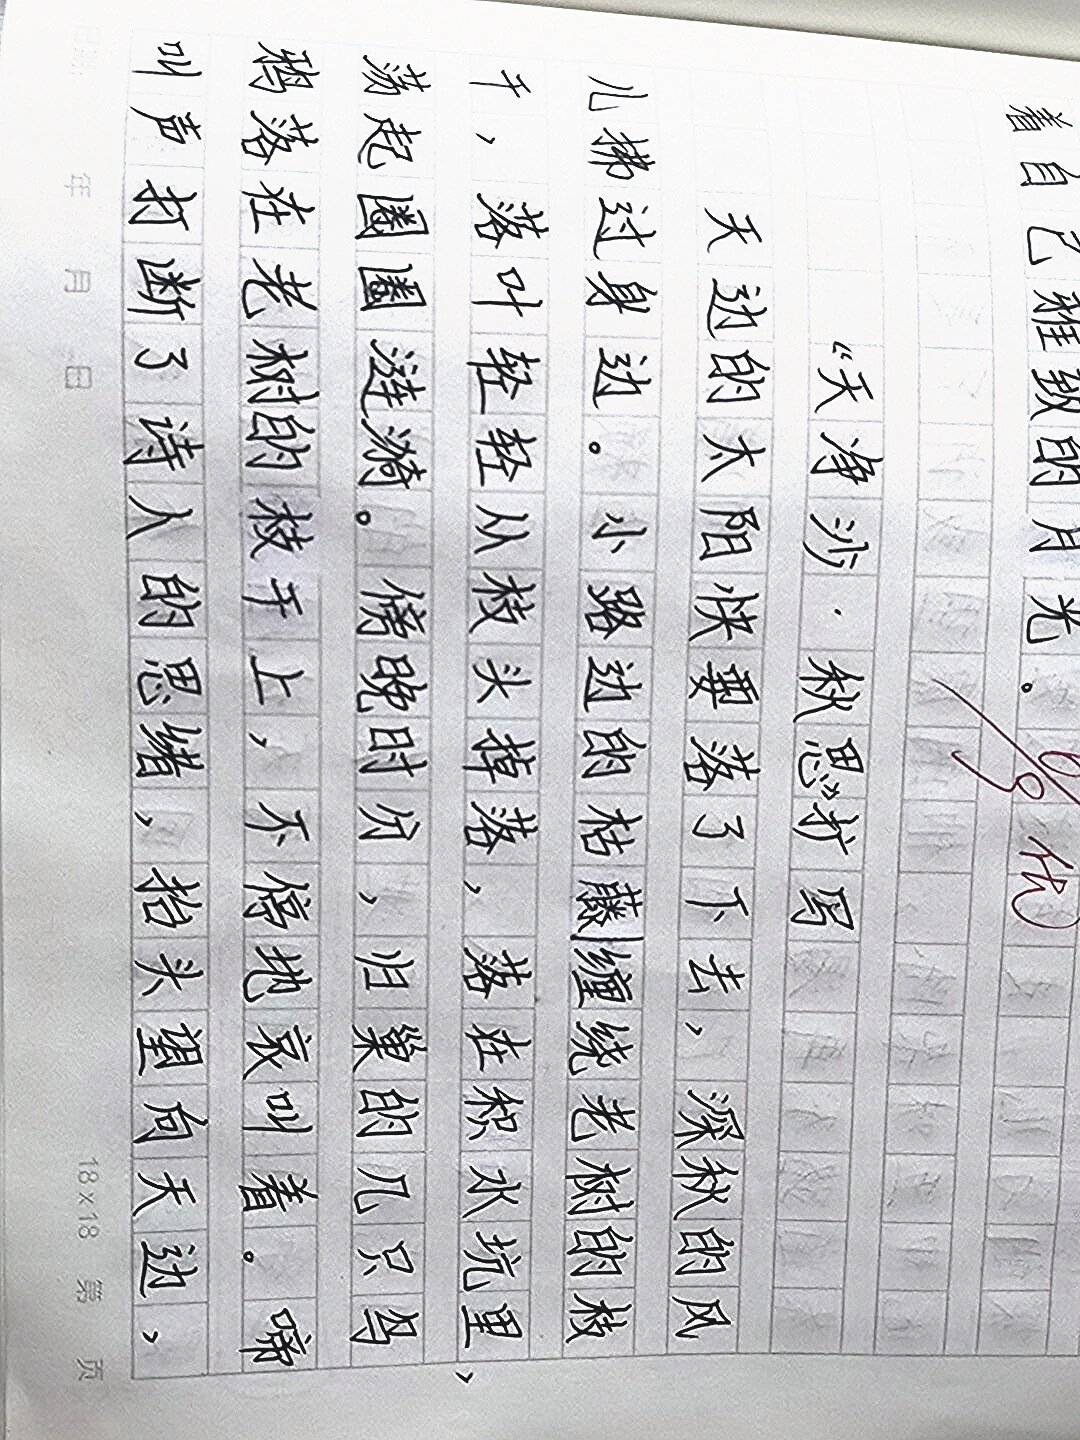 着自己雅致的月光。
优
《天净沙·秋思》扩写
天边的太阳快要落了下去，深秋的风
儿拂过身边。小路边的枯藤缠绕老树的枝
干，落叶轻轻从枝头掉落，落在积水坑里，
荡起圈圈涟漪。傍晚时分，归巢的几只乌
鸦落在老树的枝干上，不停地哀叫着。啼
叫声打断了诗人的思绪，抬头望向天边，
年 月 日
18×18 第 页